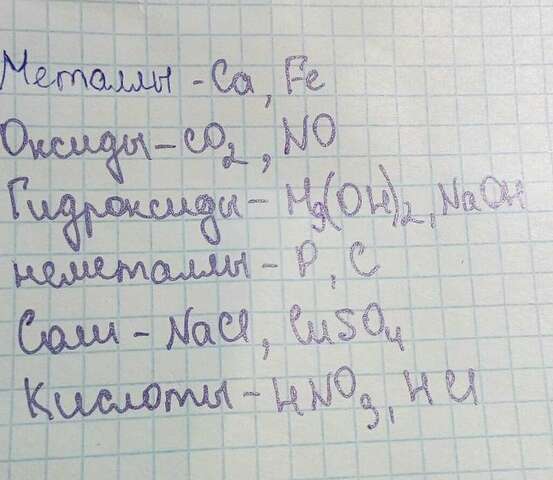 Металлы - Ca, Fe
Оксиды - CO2, NO
Гидроксиды - Hg(OH)2, NaOH
неметаллы - P, C
Соли - NaCl, CuSO4
Кислоты - HNO3, HCl